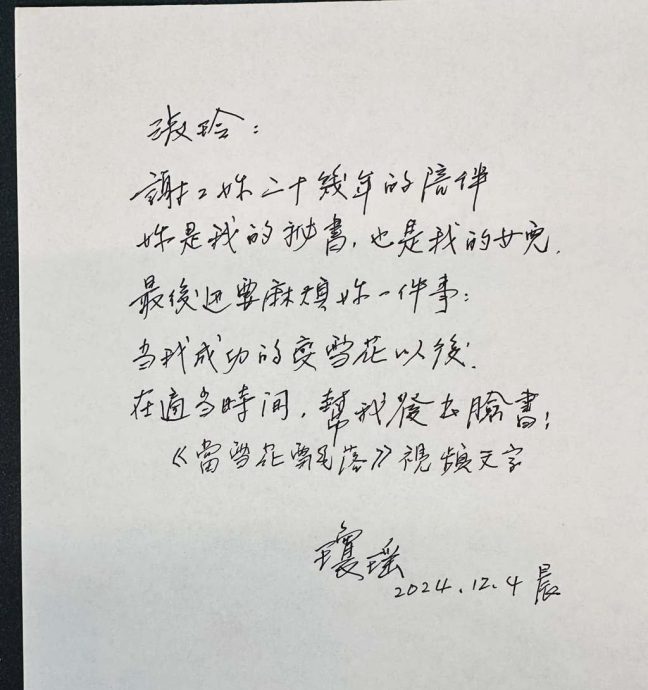 淑玲：
謝々妳二十幾年的陪伴
妳是我的秘書，也是我的女兒.
最後还要麻煩妳一件事：
当我成功的变雪花以後.
在適当時间，幫我發在臉書！
《當雪花飄落》視頻文字
瓊瑤
2024.12.4 晨